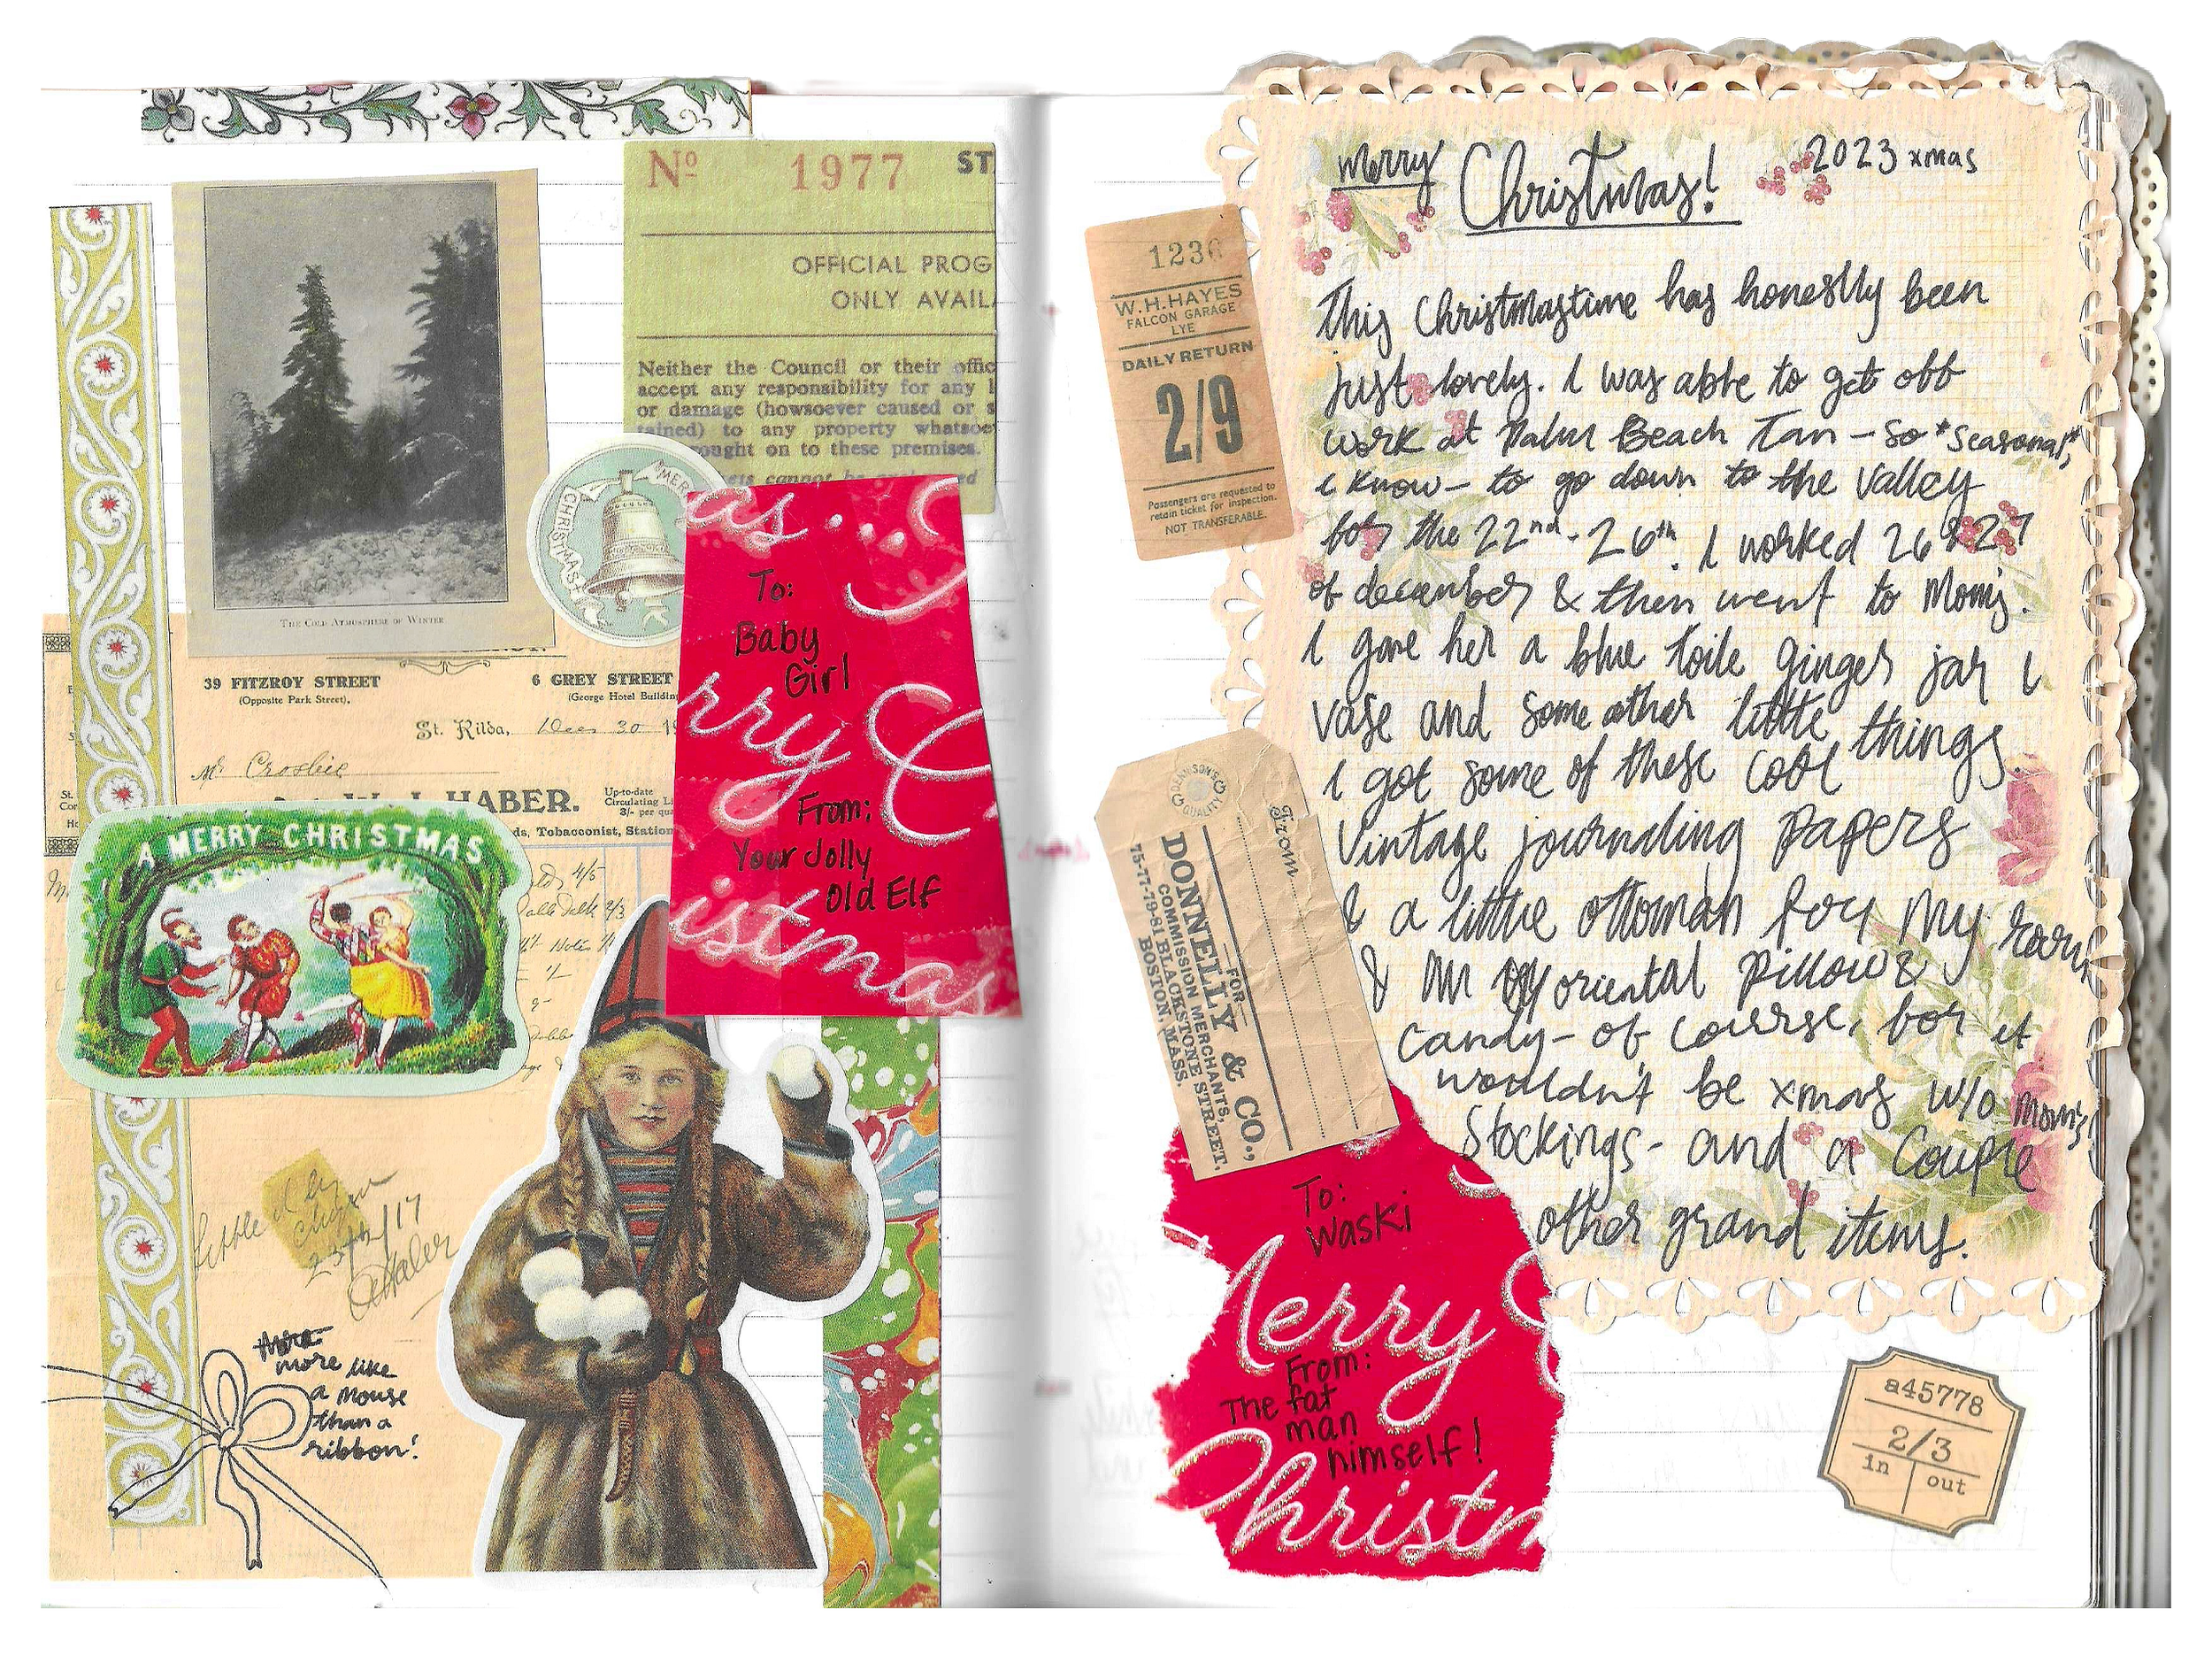 Nº 1977 ST
OFFICIAL PROG
ONLY AVAIL
Neither the Council or their offic
accept any responsibility for any l
or damage (howsoever caused or s
tained) to any property whatsoe
ought on to these premises.
ets cannot be
ed
THE COLD ATMOSPHERE OF WINTER
MERRY
CHRISTMAS
as...
To:
Baby
Girl
rry C
From:
Your Jolly
Old Elf
istmas
39 FITZROY STREET
(Opposite Park Street),
6 GREY STREET
(George Hotel Building
St. Kilda, Dec 30 19
Mr Crosbie
W. J. HABER.
Up-to-date
Circulating Li
3/- per qua
ds, Tobacconist, Station
A MERRY CHRISTMAS
4/5
2/3
23 /17
Haber
more like
a mouse
than a
ribbon!
merry Christmas! 2023 xmas
This Christmastime has honestly been
just lovely. I was able to get off
work at Palm Beach Tan - so *seasonal*,
I know - to go down to the valley
for the 22nd - 26th. I worked 26 & 27
of december & then went to Mom's.
I gave her a blue toile ginger jar &
vase and some other little things.
I got some of these cool
vintage journaling papers
& a little ottoman for my room
& an oriental pillow &
candy - of course, for it
wouldn't be xmas w/o mom's
stockings - and a couple
other grand items.
1236
W.H.HAYES
FALCON GARAGE
LYE
DAILY RETURN
2/9
Passengers are requested to
retain ticket for inspection.
NOT TRANSFERABLE.
DENNISON'S
QUALITY
From
FOR
DONNELLY & CO.,
COMMISSION MERCHANTS,
75-77-79-81 BLACKSTONE STREET,
BOSTON, MASS.
To:
Waski
Merry C
From:
The fat
man
himself!
Christm
a45778
2/3
in out